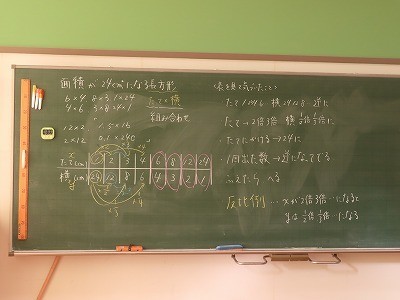 面積が24cm²になる長方形
6×4 8×3 1×24
4×6 3×8 24×1
たて×横
組み合わせ
12×2 1.5×16
2×12 0.1×240
x たて(cm) 1 2 3 4 6 8 12 24
y 横(cm) 24 12 8 6 4 3 2 1
〈表を見て気づいたこと〉
たて1 2 4 6 横24 12 8…逆に
たて→2倍3倍 横1/2倍1/3倍に
・たてにかける→24に
・1回出た数→逆になってでる
ふえたら へる
反比例…xが2倍3倍…になると
yは1/2倍1/3倍…になる